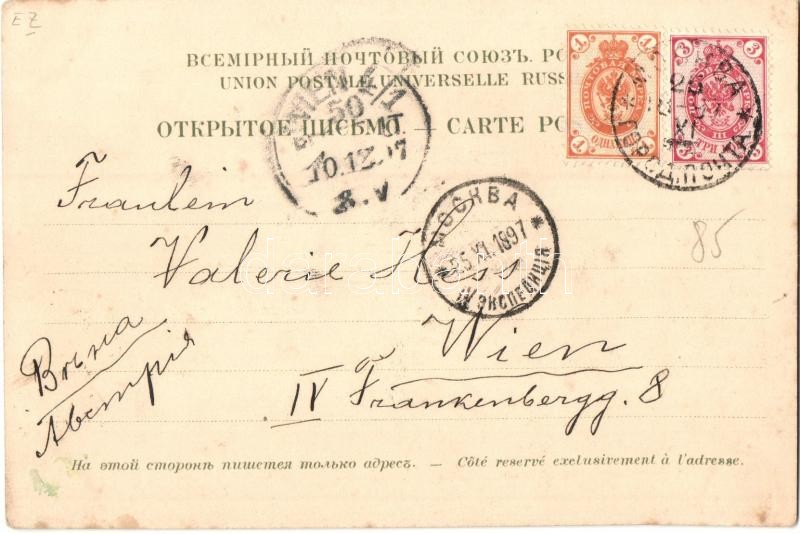 EZ
ВСЕМІРНЫЙ ПОЧТОВЫЙ СОЮЗЪ. РО
UNION POSTALE UNIVERSELLE RUSS
ОТКРЫТОЕ ПИСЬМО. — CARTE PO
1 ПОЧТОВАЯ МАРКА 1
ОДНА
3 3
III ТРИ
ГОРОД. ПОЧТА
WIEN 4/1
50
10.12.97
8.V
МОСКВА
25 XI.1897
IV ЭКСПЕДИЦІЯ
Fraulein
Valerie Hess
Wien
IV Frankenbergg. 8
Вѣна
Австрія
85
На этой сторонѣ пишется только адресъ. — Côté reservé exclusivement à l'adresse.